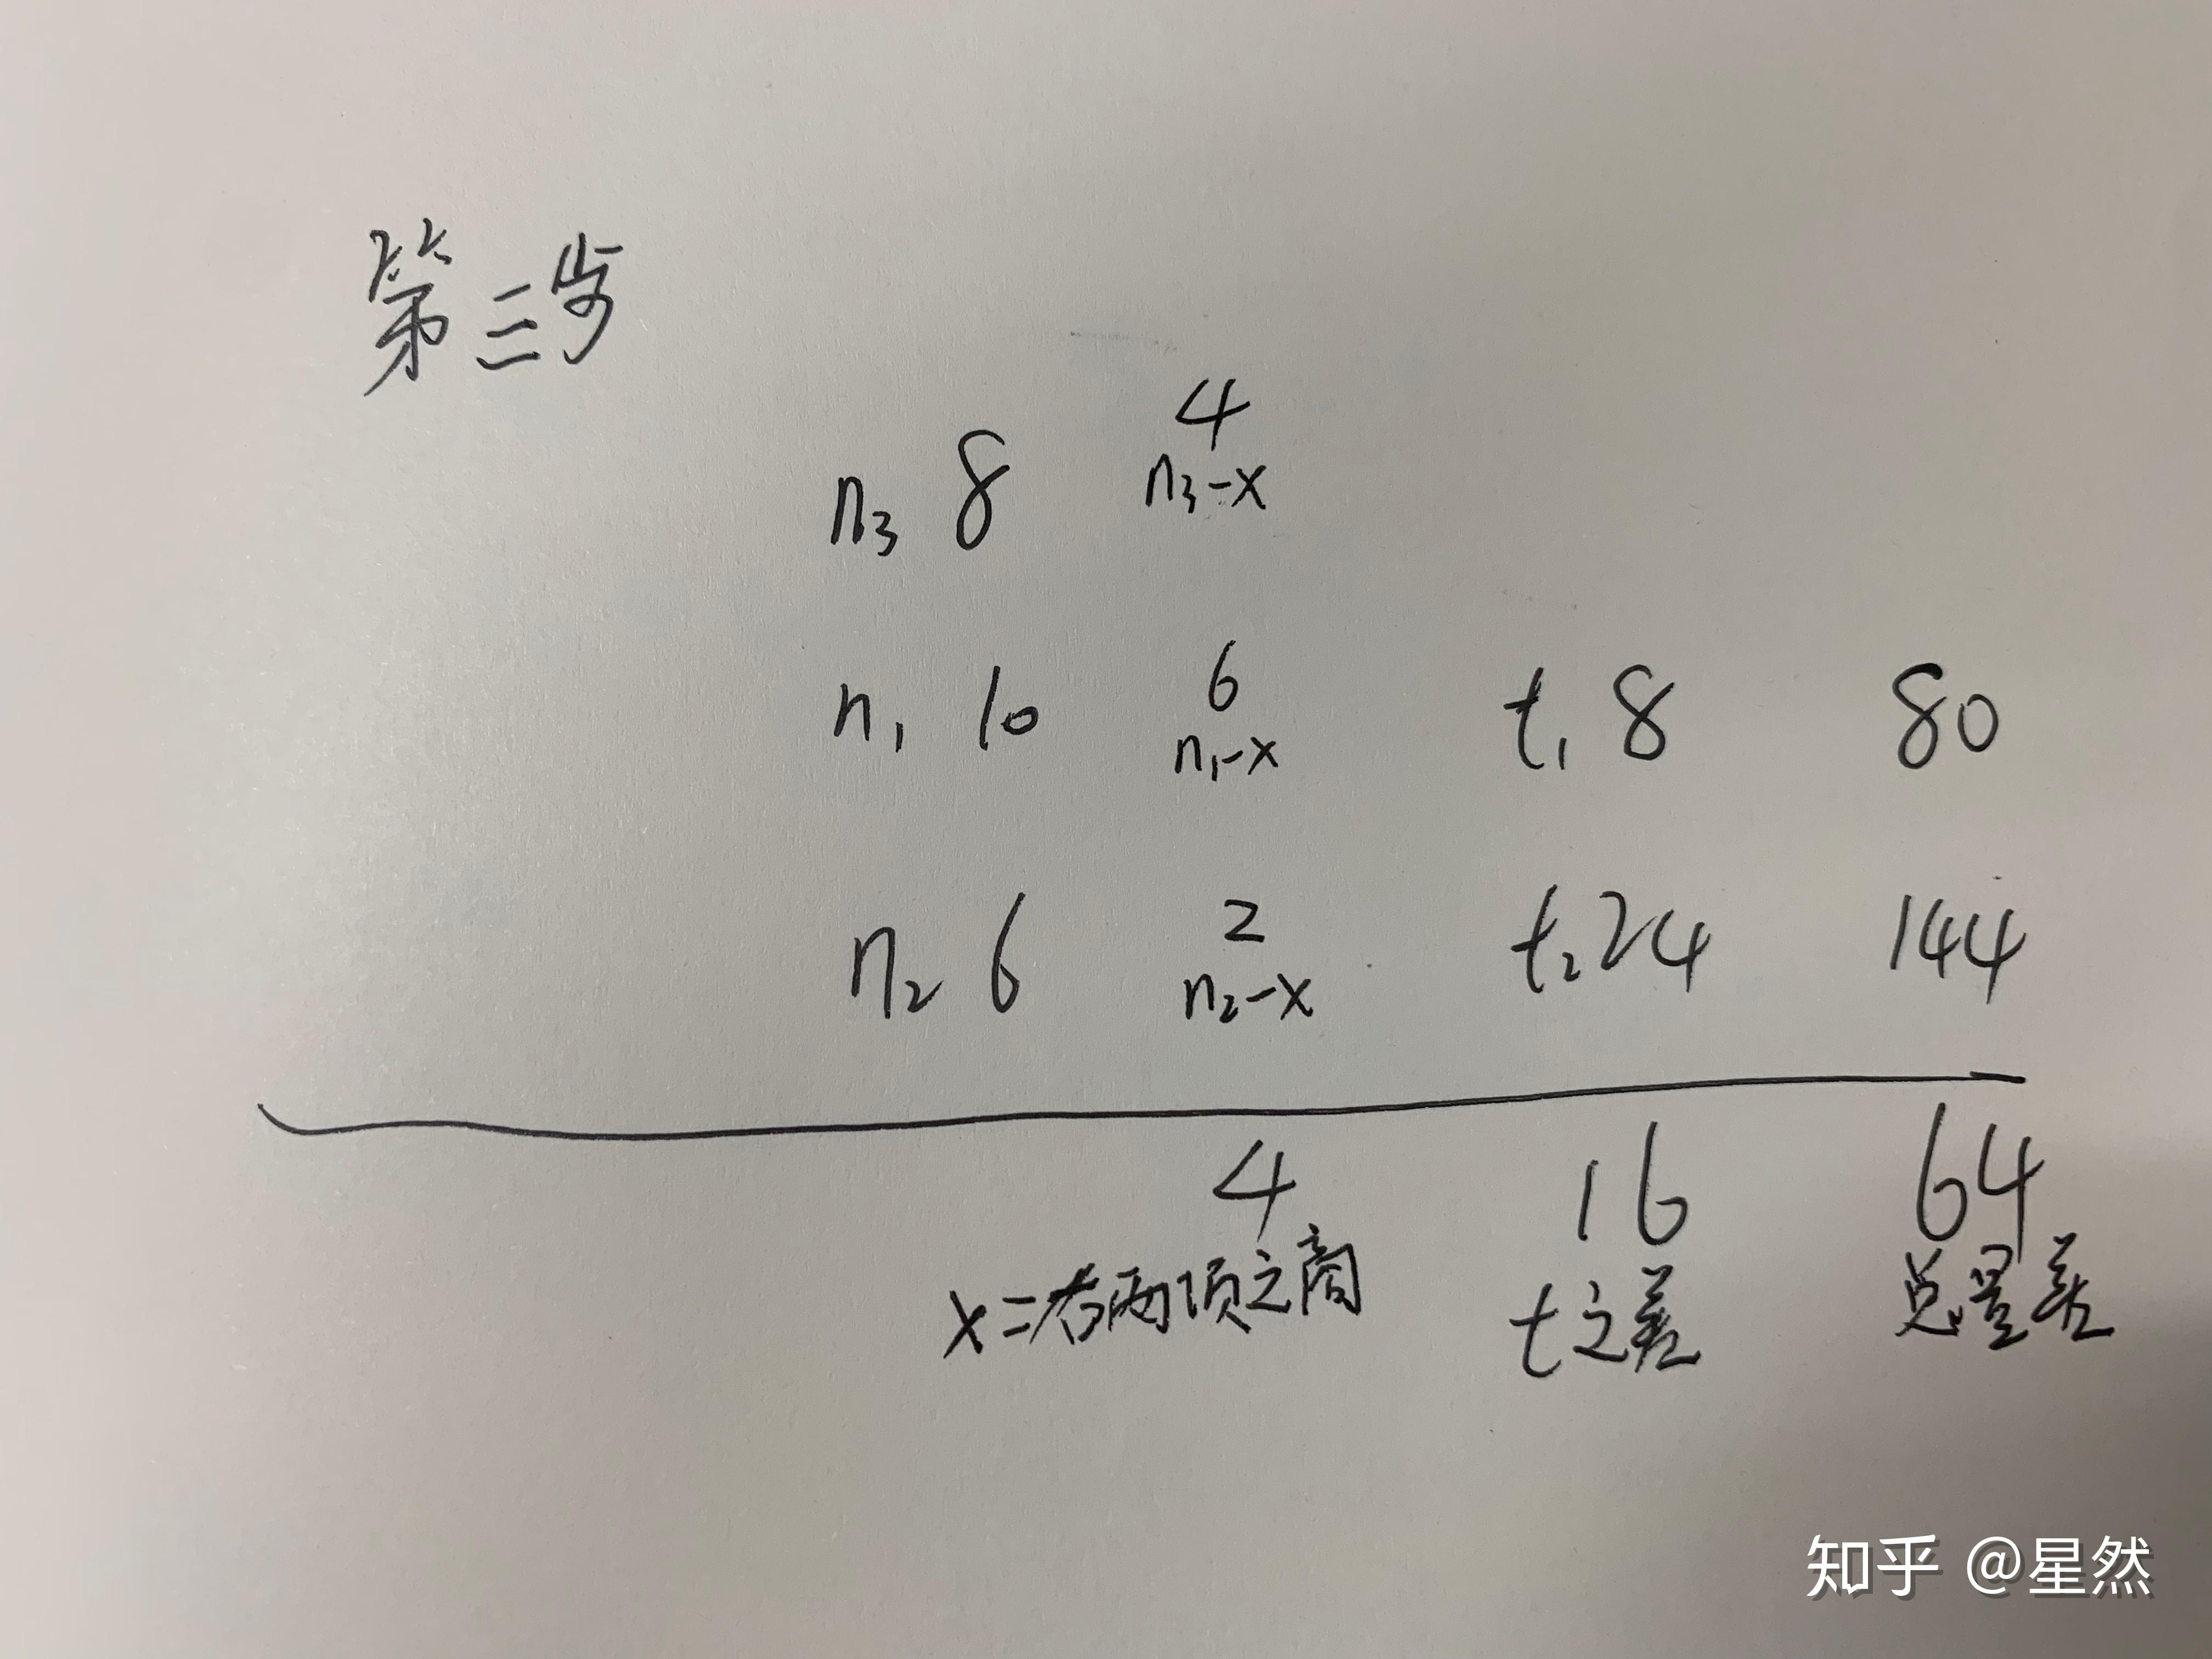 第三步
4
n₃ 8 n₃-x
6
n₁ 10 n₁-x t₁ 8 80
2
n₂ 6 n₂-x t₂ 24 144
4 16 64
x=右两项之商 t之差 总量差
知乎 @星然